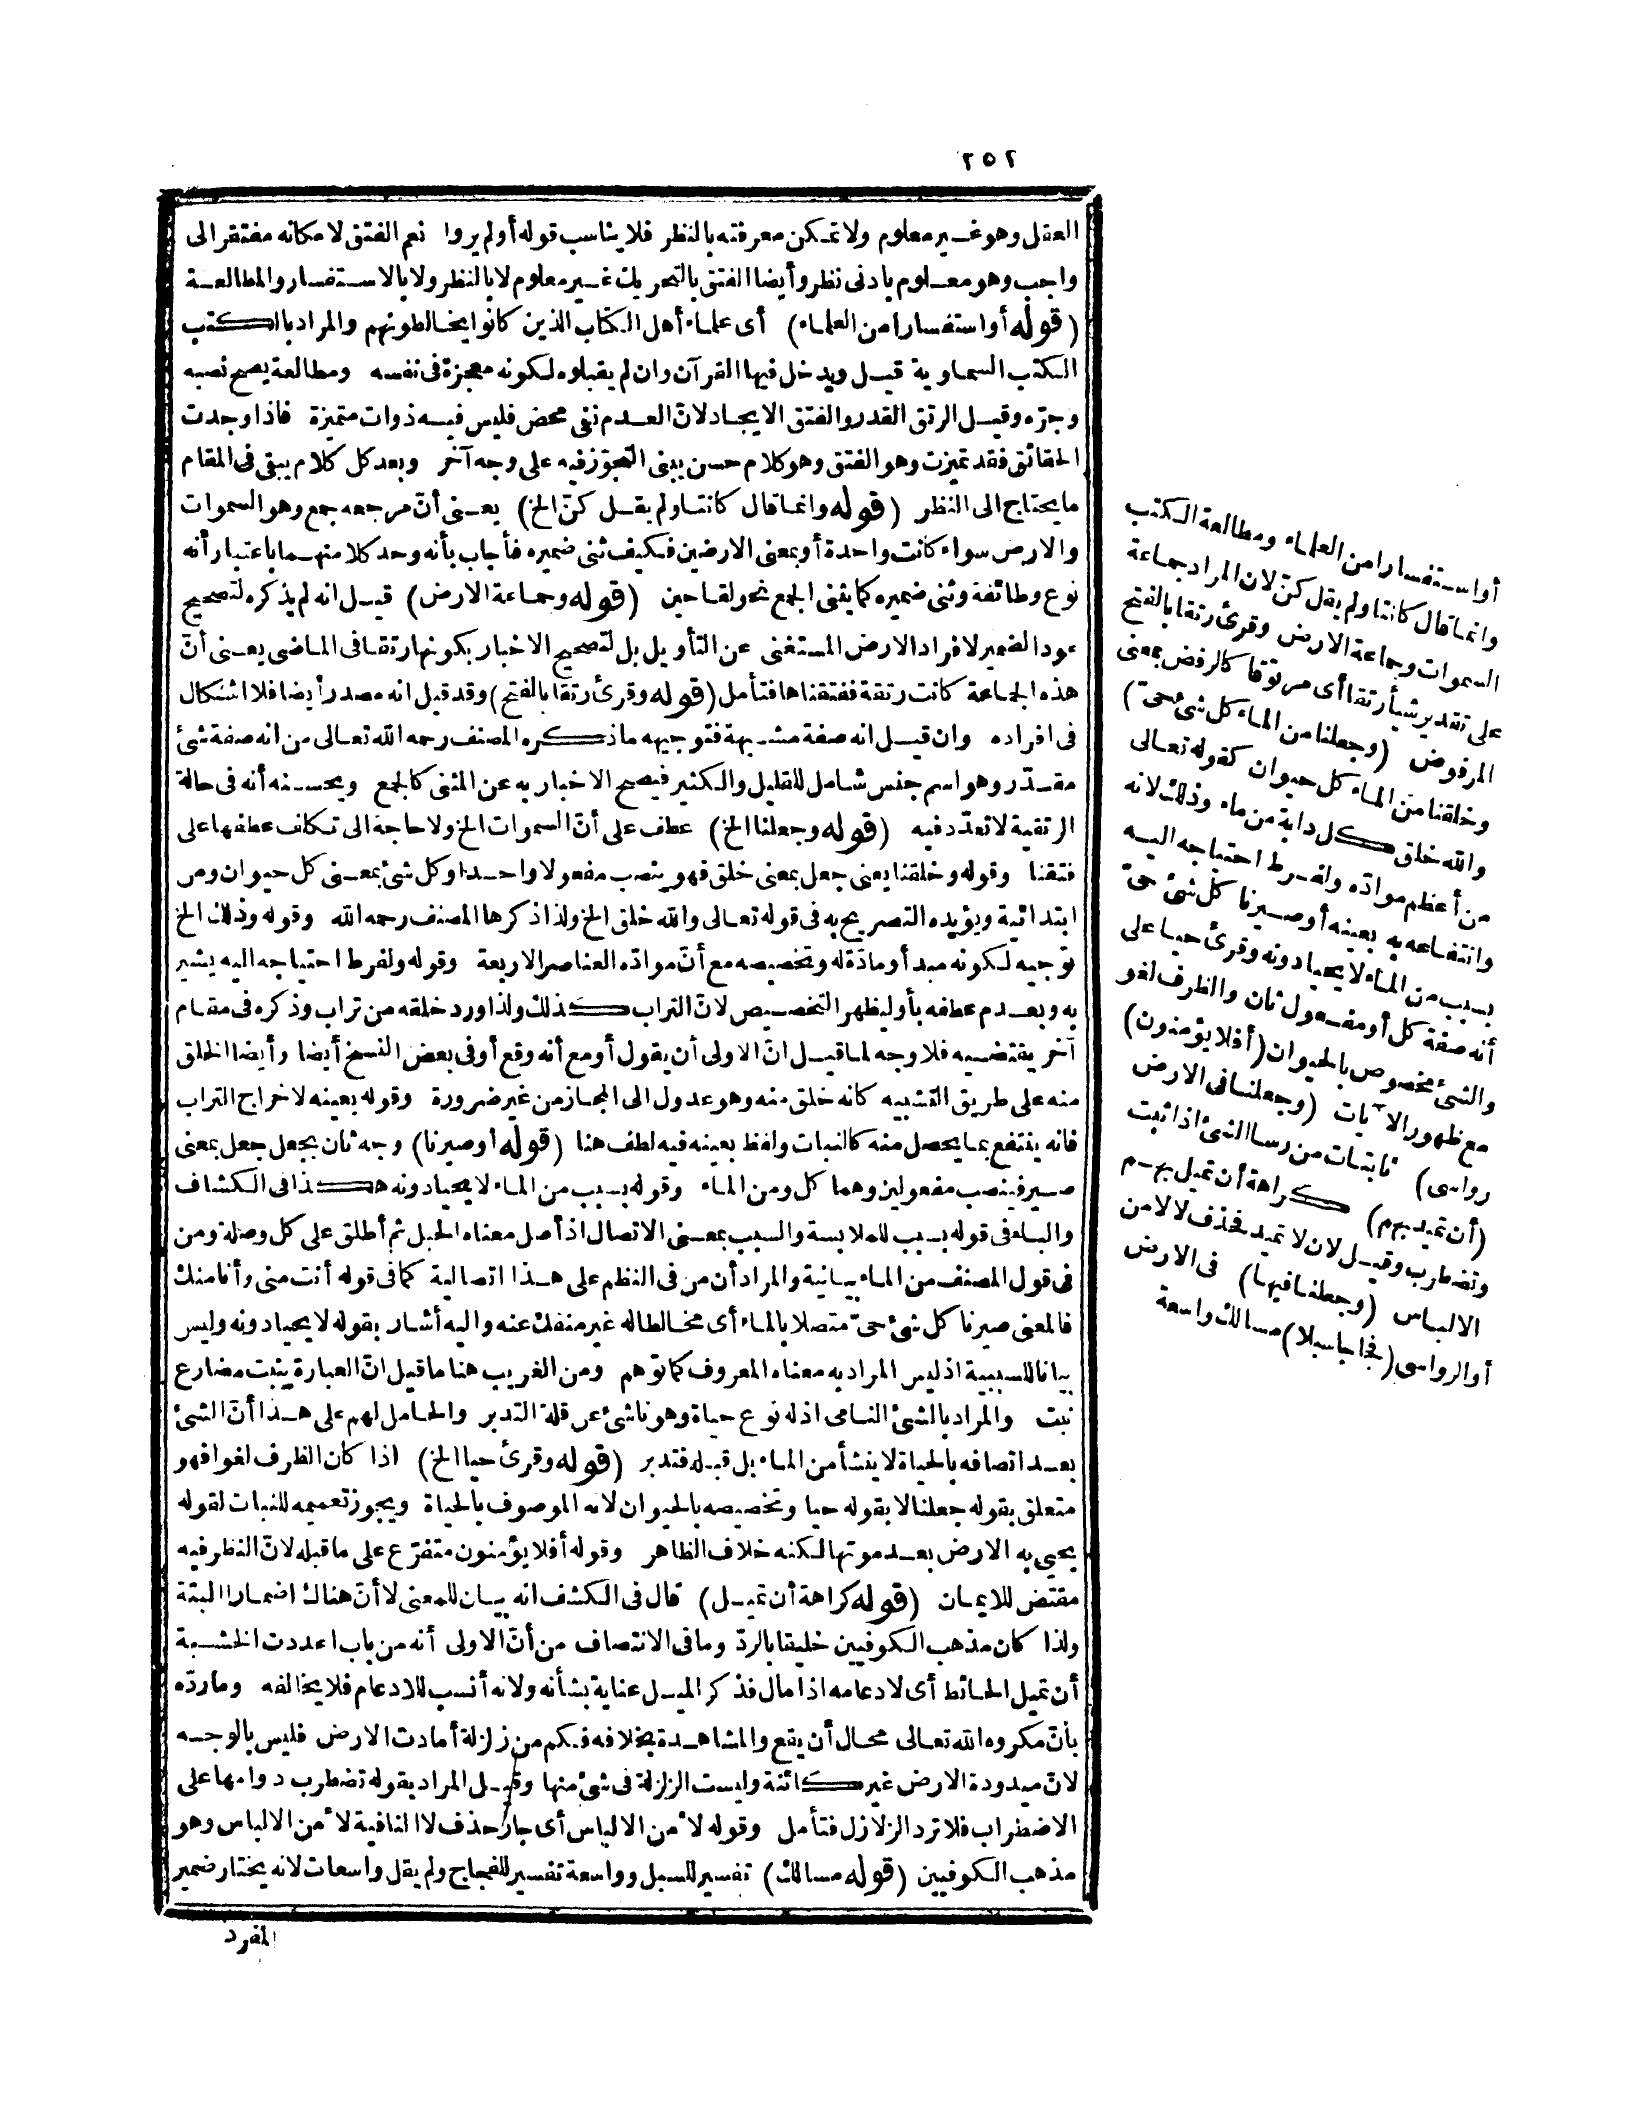 ٢٥٢
العقل وهو غير معلوم ولا تمكن معرفته بالنظر فلا يناسب قوله أولم يروا نعم الفتق لامكانه مفتقر الى
واجب وهو معلوم بادنى نظر وأيضا الفتق بالتحريك غير معلوم لا بالنظر ولا بالاستفسار والمطالعة
(قوله أو استفسارا من العلماء) أى علماء أهل الكتاب الذين كانوا يخالطونهم والمراد بالكتب
الكتب السماوية قيل ويدخل فيها القرآن وان لم يقبلوه لكونه معجزة فى نفسه ومطالعة يصح نصبه
وجرّه وقيل الرتق القدر والفتق الايجاد لانّ العدم نفى محض فليس فيه ذوات متميزة فاذا وجدت
الحقائق فقد تميزت وهو الفتق وهو كلام حسن يبنى التجوّز فيه على وجه آخر وبعد كل كلام يبقى فى المقام
ما يحتاج الى النظر (قوله وانما قال كانتا ولم يقل كنّ الخ) يعنى أنّ مرجعه جمع وهو السموات
والارض سواء كانت واحدة أو بمعنى الارضين فكيف ثنى ضميره فأجاب بأنه وحد كلا منهما باعتبار أنه
نوع وطائفة وثنى ضميره كما يثنى الجمع نحو لقاحين (قوله وجماعة الارض) قيل انه لم يذكره لتصحيح
عود الضمير لافراد الارض المستغنى عن التأويل بل لتصحيح الاخبار بكونها رتقا فى الماضى يعنى أنّ
هذه الجماعة كانت رتقة ففتقناها فتأمل (قوله وقرئ رتقا بالفتح) وقد قيل انه مصدر أيضا فلا اشكال
فى افراده وان قيل انه صفة مشبهة فتوجيهه ما ذكره المصنف رحمه الله تعالى من انه صفة شئ
مقدّر وهو اسم جنس شامل للقليل والكثير فيصح الاخبار به عن المثنى كالجمع ويحسنه أنه فى حالة
الرتقية لا تعدّد فيه (قوله وجعلنا الخ) عطف على أنّ السموات الخ ولا حاجة الى تكلف عطفها على
فتقنا وقوله وخلقنا يعنى جعل بمعنى خلق فهو ينصب مفعولا واحدا وكل شئ بمعنى كل حيوان ومن
ابتدائية ويؤيده التصريح به فى قوله تعالى والله خلق الخ ولذا ذكرها المصنف رحمه الله وقوله وذلك الخ
توجيه لكونه مبدأ ومادّة له وتخصيصه مع أنّ موادّه العناصر الاربعة وقوله ولفرط احتياجه اليه يشير
به وبعدم عطفه بأو ليظهر التخصيص لانّ التراب كذلك ولذا ورد خلقه من تراب وذكره فى مقام
آخر يقتضيه فلا وجه لما قيل انّ الاولى أن يقول أو مع أنه وقع أو فى بعض النسخ أيضا وأيضا الخلق
منه على طريق التشبيه كانه خلق منه وهو عدول الى المجاز من غير ضرورة وقوله بعينه لاخراج التراب
فانه ينتفع بما يحصل منه كالنبات ولفظ بعينه فيه لطف هنا (قوله أو صيرنا) وجه ثان بجعل جعل بمعنى
صير فينصب مفعولين وهما كل ومن الماء وقوله بسبب من الماء لا يحيا دونه هكذا فى الكشاف
والباء فى قوله بسبب للملابسة والسبب بمعنى الاتصال اذ أصل معناه الحبل ثم أطلق على كل وصلة ومن
فى قول المصنف من الماء بيانية والمراد أن من فى النظم على هذا اتصالية كما فى قوله أنت منى وأنا منك
فالمعنى صيرنا كل شئ حىّ متصلا بالماء أى مخالطا له غير منفك عنه واليه أشار بقوله لا يحيا دونه وليس
بيانا للسببية اذ ليس المراد به معناه المعروف كما توهم ومن الغريب هنا ما قيل انّ العبارة ينبت مضارع
نبت والمراد بالشئ النامى اذ له نوع حياة وهو ناشئ عن قلة التدبر والحامل لهم على هذا أنّ الشئ
بعد اتصافه بالحياة لا ينشأ من الماء بل قبله فتدبر (قوله وقرئ حيا الخ) اذا كان الظرف لغوا فهو
متعلق بقوله جعلنا لا بقوله حيا وتخصيصه بالحيوان لانه الموصوف بالحياة ويجوز تعميمه للنبات لقوله
يحيى به الارض بعد موتها لكنه خلاف الظاهر وقوله أفلا يؤمنون متفرّع على ما قبله لانّ النظر فيه
مقتض للايمان (قوله كراهة أن تميل) قال فى الكشف انه بيان للمعنى لا أنّ هناك اضمارا البتة
ولذا كان مذهب الكوفيين خليقا بالردّ وما فى الانتصاف من أنّ الاولى أنه من باب اعددت الخشبة
أن تميل الحائط أى لادعامه اذا مال فذكر الميل عناية بشأنه ولانه أنسب للادعام فلا يخالفه وما ردّه
بأنّ مكروه الله تعالى محال أن يقع والمشاهدة بخلافه فكم من زلزلة أمادت الارض فليس بالوجه
لانّ ميدودة الارض غير كائنة وليست الزلزلة فى شئ منها وقيل المراد بقوله تضطرب دوامها على
الاضطراب فلا ترد الزلازل فتأمل وقوله لا من الالباس أى جاز حذف لا النافية لا من الالباس وهو
مذهب الكوفيين (قوله مسالك) تفسير للسبل وواسعة تفسير للفجاج ولم يقل واسعات لانه يختار ضمير
المفرد
أو استفسارا من العلماء ومطالعة الكتب
وانما قال كانتا ولم يقل كنّ لان المراد جماعة
السموات وجماعة الارض وقرئ رتقا بالفتح
على تقدير شيأ رتقا أى مرتوقا كالرفض بمعنى
المرفوض (وجعلنا من الماء كل شئ حىّ)
وخلقنا من الماء كل حيوان كقوله تعالى
والله خلق كل دابة من ماء وذلك لانه
من أعظم موادّه ولفرط احتياجه اليه
وانتفاعه به بعينه أو صيرنا كل شئ حىّ
بسبب من الماء لا يحيا دونه وقرئ حيا على
أنه صفة كل أو مفعول ثان والظرف لغو
والشئ مخصوص بالحيوان (أفلا يؤمنون)
مع ظهور الآيات (وجعلنا فى الارض
رواسى) ثابتات من رسا الشئ اذا ثبت
(أن تميد بهم) كراهة أن تميل بهم
وتضطرب وقيل لان لا تميد فحذف لا لامن
الالباس (وجعلنا فيها) فى الارض
أو الرواسى (فجاجا سبلا) مسالك واسعة